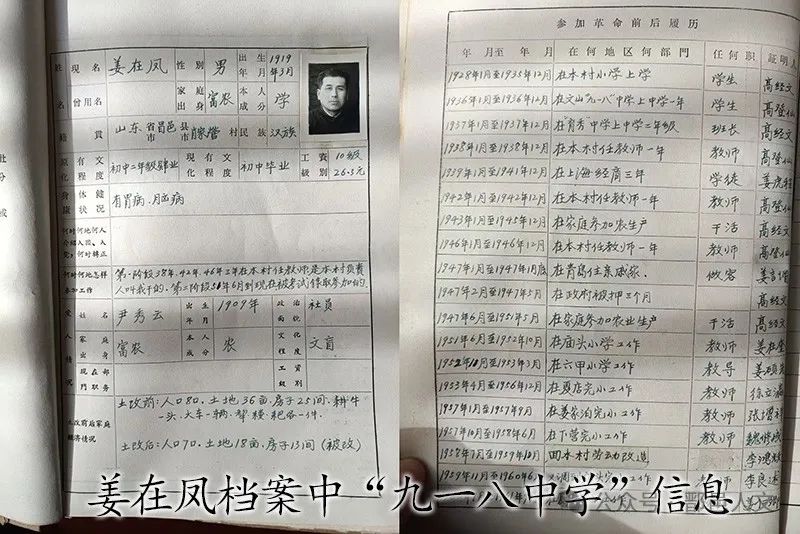 姓 现名 姜在凤 性别 男 出生年月 1919年3月
名 曾用名 家庭出身 富农 本人成分 学
籍贯 山东省昌邑县市 村 民族 汉族
原有文化程度 初中二年级肄业 现有文化程度 初中毕业 工资级别 10级 26.5元
身体健康状况 有胃病、
何时何地何人介绍入团、入党,何时转正
何时何地怎样参加工作 第一阶段38年、42年、46年三年在本村任教师,是本村负责人叫我干的。第二阶段51年6月到现在被考试录取参加的。
姓名 尹秀云 出生年月 1909年 政治面貌 社员
家庭出身 富农 本人成分 农 文化程度 文盲
现在部门职务 工资级别
土改前后家庭经济情况
土改前:人口8口、土地36亩、房子25间、耕牛一头、大车一辆、犁耧耙各一件。
土改后:人口7口、土地18亩、房子13间(被改)
参加革命前后履历
年 月至 年 月 在何地区何部门 任何职 证明人
1928年1月至1935年12月 在本村小学上学 学生 高经文
1936年1月至1936年12月 在文山“九一八”中学上中学一年 学生 高登仙
1937年1月至1937年12月 在育秀中学上中学二年级 班长 高经文
1938年1月至1938年12月 在本村任教师一年 教师 高登仙
1939年1月至1941年12月 在上海经商三年 学徒 姜虎
1942年1月至1942年12月 在本村任教师一年 教师 高登仙
1943年1月至1945年12月 在家庭参加农生产 干活 高经文
1946年1月至1946年12月 在本村任教师一年 教师 高登仙
1947年1月至1947年1月底 在青岛住亲戚家 做客 姜
1947年2月至1947年5月 在政府被押三个月 高经文
1947年6月至1951年5月 在家庭参加农业生产 干活 高经文
1951年6月至1952年10月 在庙头小学工作 教师 姜在
1952年10月至1953年3月 在六甲小学工作 教导 姜
1953年4月至1956年12月 在夏店完小工作 教师 徐立
1957年1月至1957年9月 在姜家泊完小工作 教师 张
1957年10月至1958年6月 在下营完小工作 教师 魏修
1958年7月至1959年10月 回本村劳动改造 李鸿
1959年11月至1960年6月 教师 李良
姜在凤档案中“九一八中学”信息
公众号